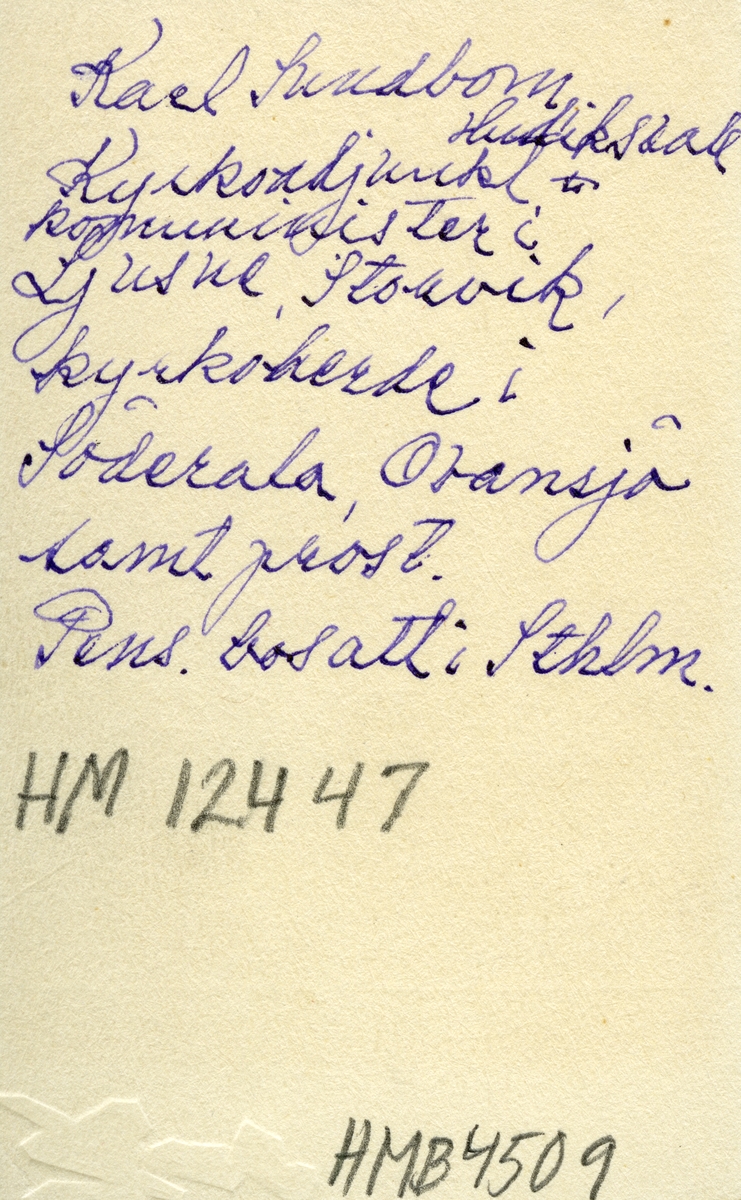 Karl Sundbom
Hudiksvall
Kyrkoadjunkt +
komminister i
Ljusne, Storvik,
kyrkoherde i
Söderala, Ovansjö
samt prost.
Pens. bosatt i Sthlm.
HM 12447
HMB4509